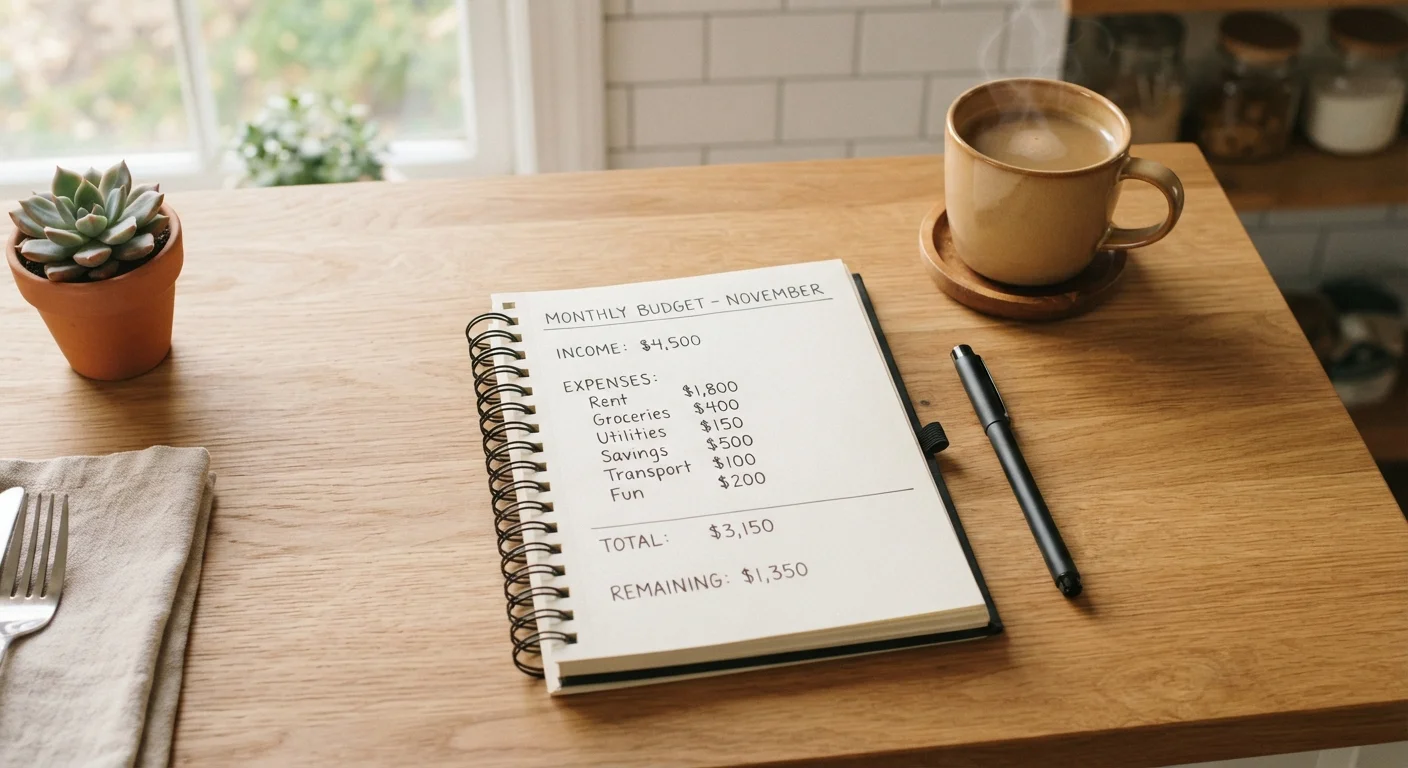 MONTHLY BUDGET - NOVEMBER
INCOME: $4,500
EXPENSES:
Rent $1,800
Groceries $400
Utilities $150
Savings $500
Transport $100
Fun $200
TOTAL: $3,150
REMAINING: $1,350